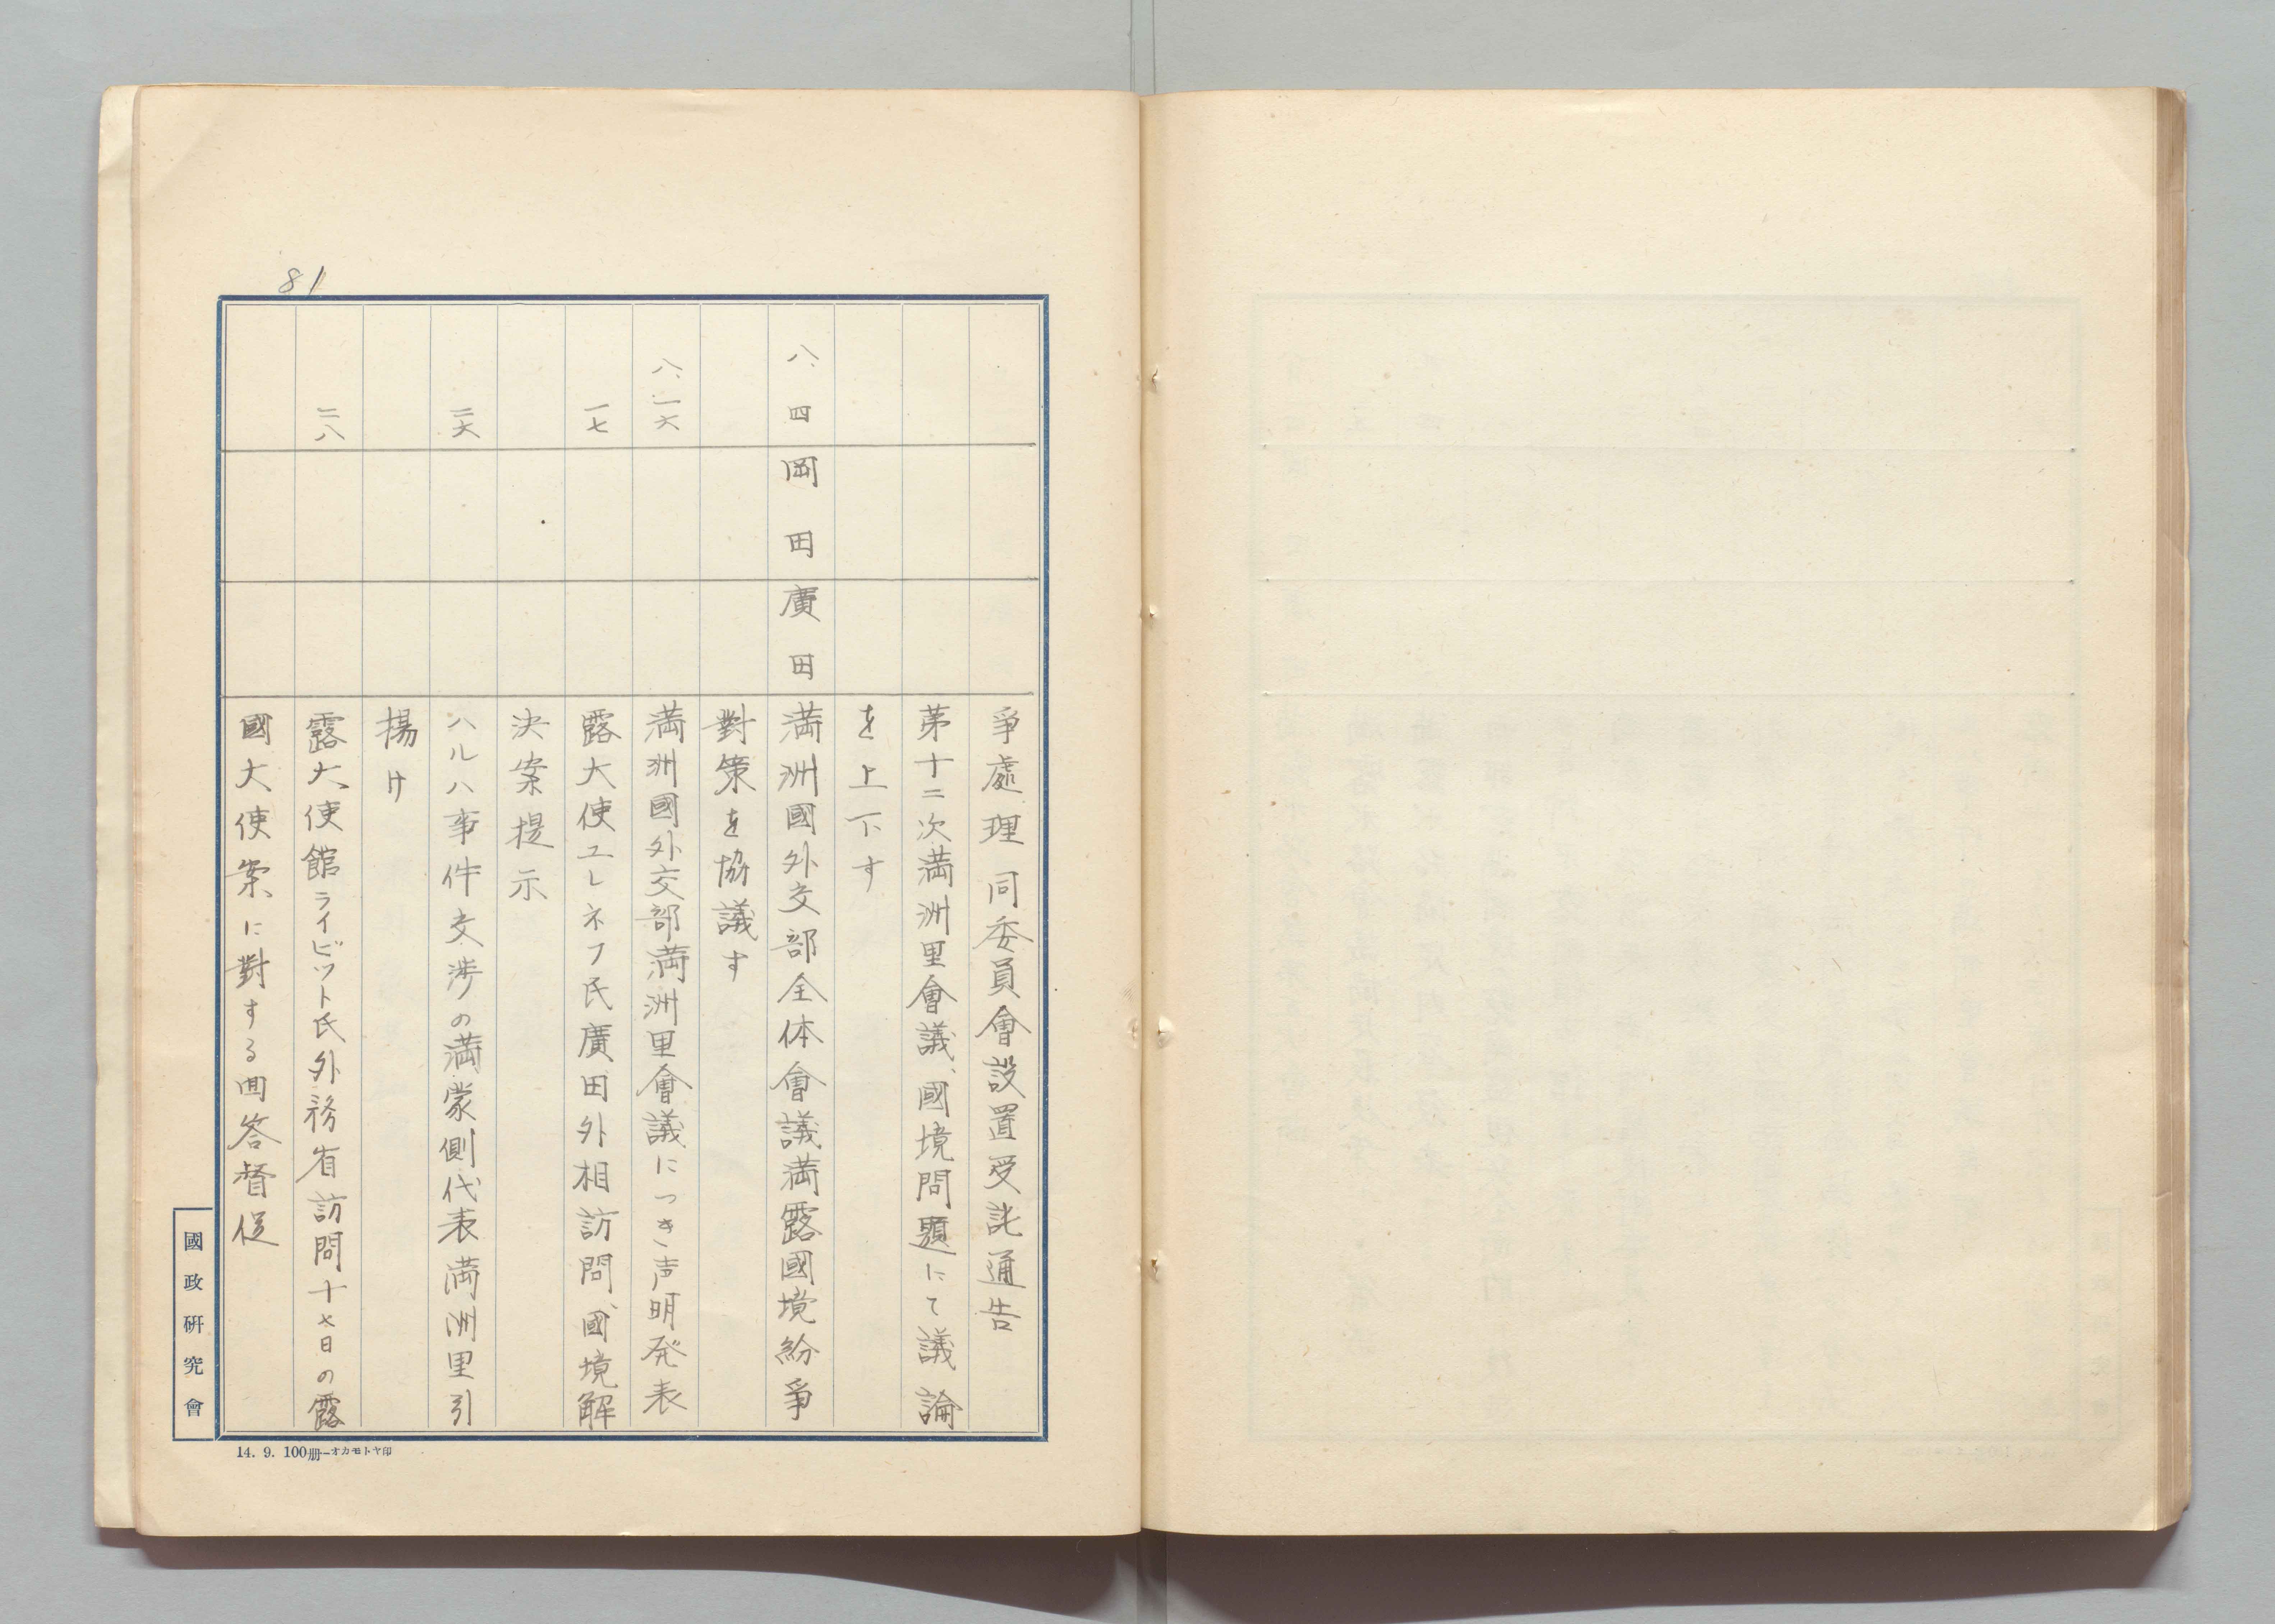 81
爭處理同委員會設置受託通告
第十二次満洲里會議、國境問題にて議論
を上下す
八、四 岡田 廣田 満洲國外交部全体會議満露國境紛爭
對策を協議す
八、一六 満洲國外交部満洲里會議につき声明発表
一七 露大使ユレネフ氏廣田外相訪問、國境解
決案提示
二六 ハルハ事件交渉の満蒙側代表満洲里引
揚け
二八 露大使館ライビット氏外務省訪問十七日の露
國大使案に對する回答督促
國政研究會
14. 9. 100册―オカモトヤ印